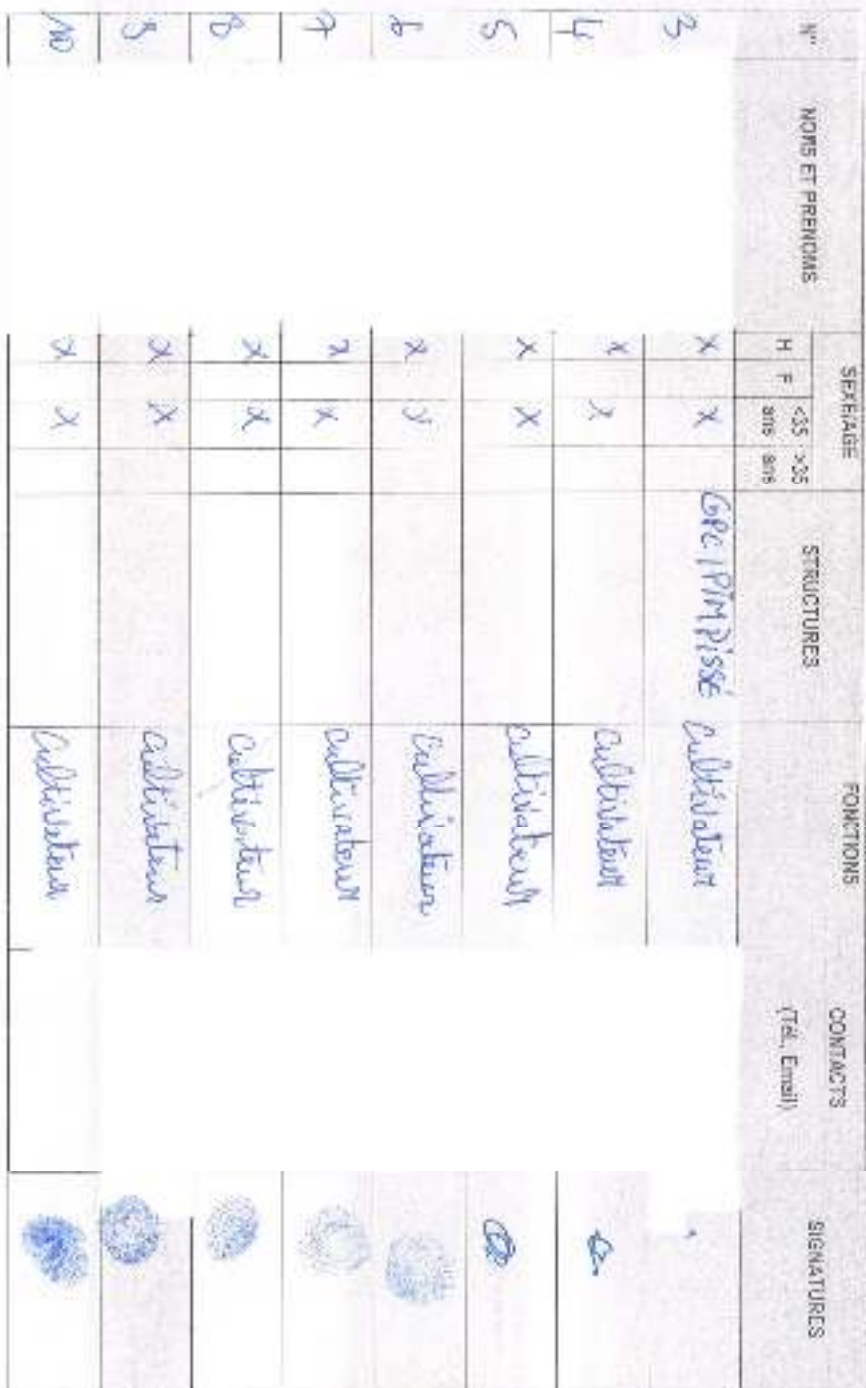 N° NOMS ET PRENOMS SEXE/AGE STRUCTURES FONCTIONS CONTACTS (Tél., Email) SIGNATURES
H F <35 ans >35 ans
3 X X Cultivateur
4 X X Cultivateur
5 X X Cultivateur
6 X X Cultivateur
7 X X Cultivateur
8 X X Cultivateur
9 X X Cultivateur
10 X X Cultivateur